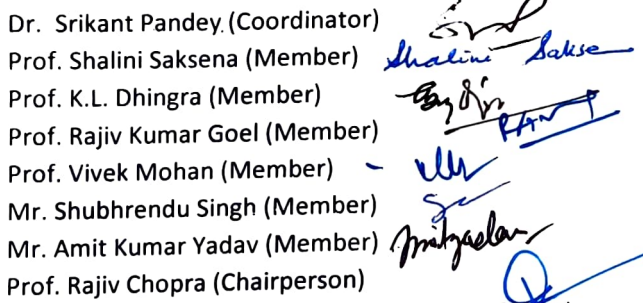 Dr. Srikant Pandey (Coordinator)
Prof. Shalini Saksena (Member) Shalini Sakse
Prof. K.L. Dhingra (Member)
Prof. Rajiv Kumar Goel (Member)
Prof. Vivek Mohan (Member)
Mr. Shubhrendu Singh (Member)
Mr. Amit Kumar Yadav (Member) Amityadav
Prof. Rajiv Chopra (Chairperson)